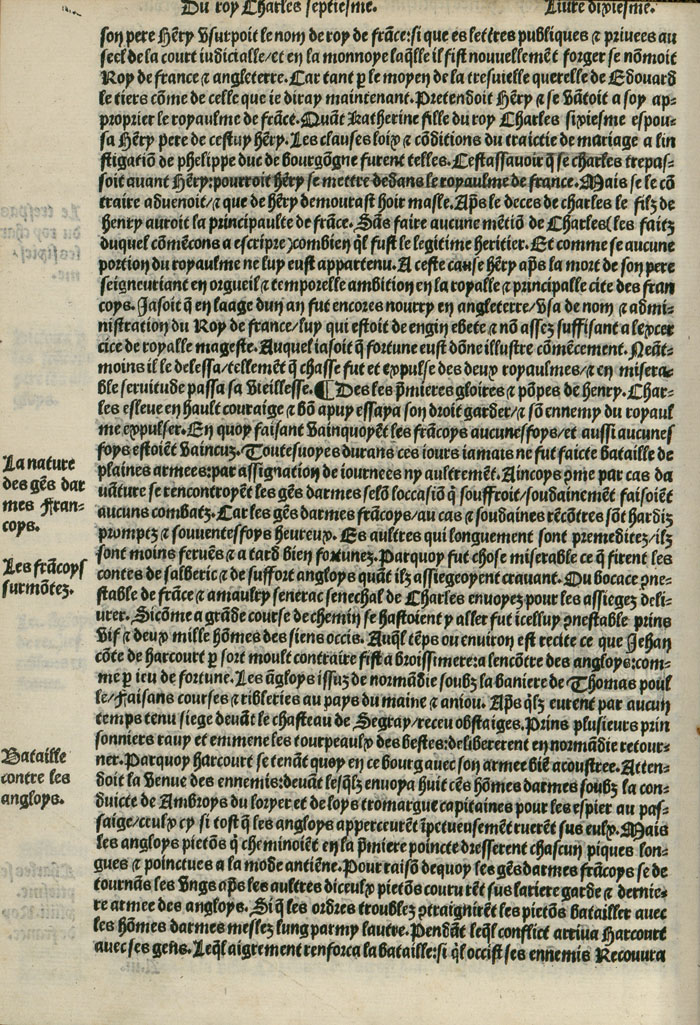 Du roy Charles septiesme. Liure dixiesme.
son pere Hẽry vsurpoit le nom de roy de frãce:si que es lettres publiques ⁊ priuees au
seel de la court iudicialle/et en la monnoye laq̃lle il fist nouuellemẽt forger se nõmoit
Roy de france ⁊ angleterre. Car tant p le moyen de la tresuielle querelle de Edouard
le tiers cõme de celle que ie diray maintenant. Pretendoit Hẽry ⁊ se vãtoit a soy ap-
proprier le royaulme de frãce. Quãt katherine fille du roy Charles sixiesme espou-
sa Hẽry pere de cestuy hẽry. Les clauses loix ⁊ cõditions du traictie de mariage a lin
stigatiõ de phelippe duc de bourgõgne furent telles. Cestassauoir q̃ se charles trepas-
soit auant Hẽry:pourroit hẽry se mettre dedans le royaulme de france. Mais se le cõ
traire aduenoit/⁊ que de hẽry demourast hoir masle. Aps̃ le deces de charles le filz de
henry auroit la principaulte de frãce. Sãs faire aucune mẽtiõ de Charles(les faitz
duquel cõmẽcons a escripre)combien q̃l fust le legitime heritier. Et comme se aucune
portion du royaulme ne luy eust appartenu. A ceste cause hẽry aps̃ la mort de son pere
seigneuriant en orgueil ⁊ temporelle ambition en la royalle ⁊ principalle cite des fran
coys. Jasoit q̃ en laage dun an fut encores nourry en angleterre/vsa de nom ⁊ admi-
nistration du Roy de france/luy qui estoit de engin ebete ⁊ nõ assez suffisant a lexcer
cice de royalle mageste. Auquel iasoit q̃ fortune eust dõne illustre cõmẽcement. Neãt-
moins il le delessa/tellemẽt q̃ chasse fut et expulse des deux royaulmes/⁊ en misera-
ble seruitude passa sa vieillesse. ¶ Des les p̃mieres gloires ⁊ põpes de henry. Char-
les esleue en hault couraige ⁊ bõ apuy essaya son droit garder/⁊ sõ ennemy du royaul
me expulser. En quoy faisant vainquoyẽt les frãcoys aucunesfoys/et aussi aucunes
foys estoiẽt vaincuz. Toutesuoyes durans ces iours iamais ne fut faicte bataille de
plaines armees:par assignation de iournees ny aultremẽt. Aincoys ꝯme par cas da
uãture se rencontroyẽt les gẽs darmes selõ loccasiõ q̃ souffroit/soudainemẽt faisoiẽt
aucuns combatz. Car les gẽs darmes frãcoys/au cas ⁊ soudaines rẽcõtres sõt hardiz
promptz ⁊ souuentesfoys heureux. Es aultres qui longuement sont premeditez/ilz
sont moins feruẽs ⁊ a tard bien fortunez. Parquoy fut chose miserable ce q̃ firent les
contes de salberic ⁊ de suffort angloys quãt ilz assiegeoyent crauant. Ou bocace ꝯne-
stable de frãce ⁊ amaulry senerac seneschal de Charles enuoyez pour les assiegez deli-
urer. Sicõme a grãde course de chemin se hastoient y aller fut icelluy ꝯnestable prins
vif ⁊ deux mille hõmes des siens occis. Auq̃l tẽps ou enuiron est recite ce que Jehan
cõte de harcourt p sort moult contraire fist a broissimere:a lencõtre des angloys:com-
me p ieu de fortune. Les ãgloys issuz de normãdie soubz la baniere de Thomas poul
le/Faisans courses ⁊ ribleries au pays du maine ⁊ aniou. Aps̃ q̃lz eurent par aucun
temps tenu siege deuãt le chasteau de Segray/receu obstaiges. Prins plusieurs prin
sonniers rauy et emmene les tourpeaulx des bestes:delibererent en normãdie retour-
ner. Parquoy harcourt se tenãt quoy en ce bourg auec son armee biẽ acoustree. Atten-
doit la venue des ennemis:deuãt lesq̃lz enuoya huit cẽs hõmes darmes soubz la con-
duicte de Ambroys du loryer et de loys tromargue capitaines pour les espier au pas-
saige/ceulx cy si tost q̃ les angloys apperceurẽt ĩpetueusemẽt ruerẽt sus eulx. Mais
les angloys pietõs q̃ cheminoiẽt en la p̃miere poincte dresserent chascun piques lon-
gues ⁊ poinctues a la mode antiẽne. Pour raisõ dequoy les gẽs darmes frãcoys se de
tournãs les vngs aps̃ les aultres diceulx pietõs coururẽt sus lariere garde ⁊ dernie-
re armee des angloys. Si q̃ les ordres troublez ꝯtraignirẽt les pietõs batailler auec
les hõmes darmes meslez lung parmy lautre. Pendãt leq̃l conflict arriua Harcourt
auec ses gens. Leq̃l aigrement renforca la bataille:si q̃l occist ses ennemis Recouura
La nature
des gẽs dar
mes Fran-
coys.
Les frãcoys
surmõtez.
Bataille
contre les
angloys.